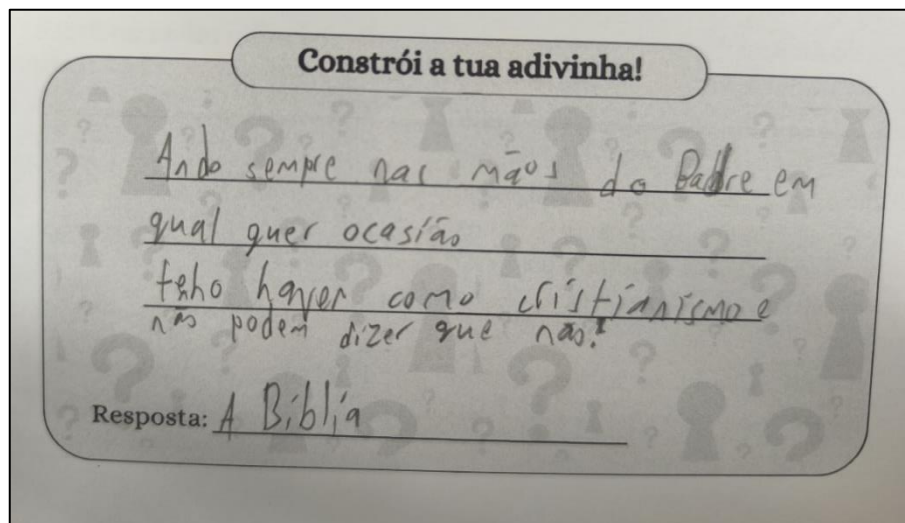 Constrói a tua adivinha!
Ando sempre nas mãos do Padre em
qual quer ocasião
tenho haver como cristianismo e
não podem dizer que não!
Resposta: A Bíblia